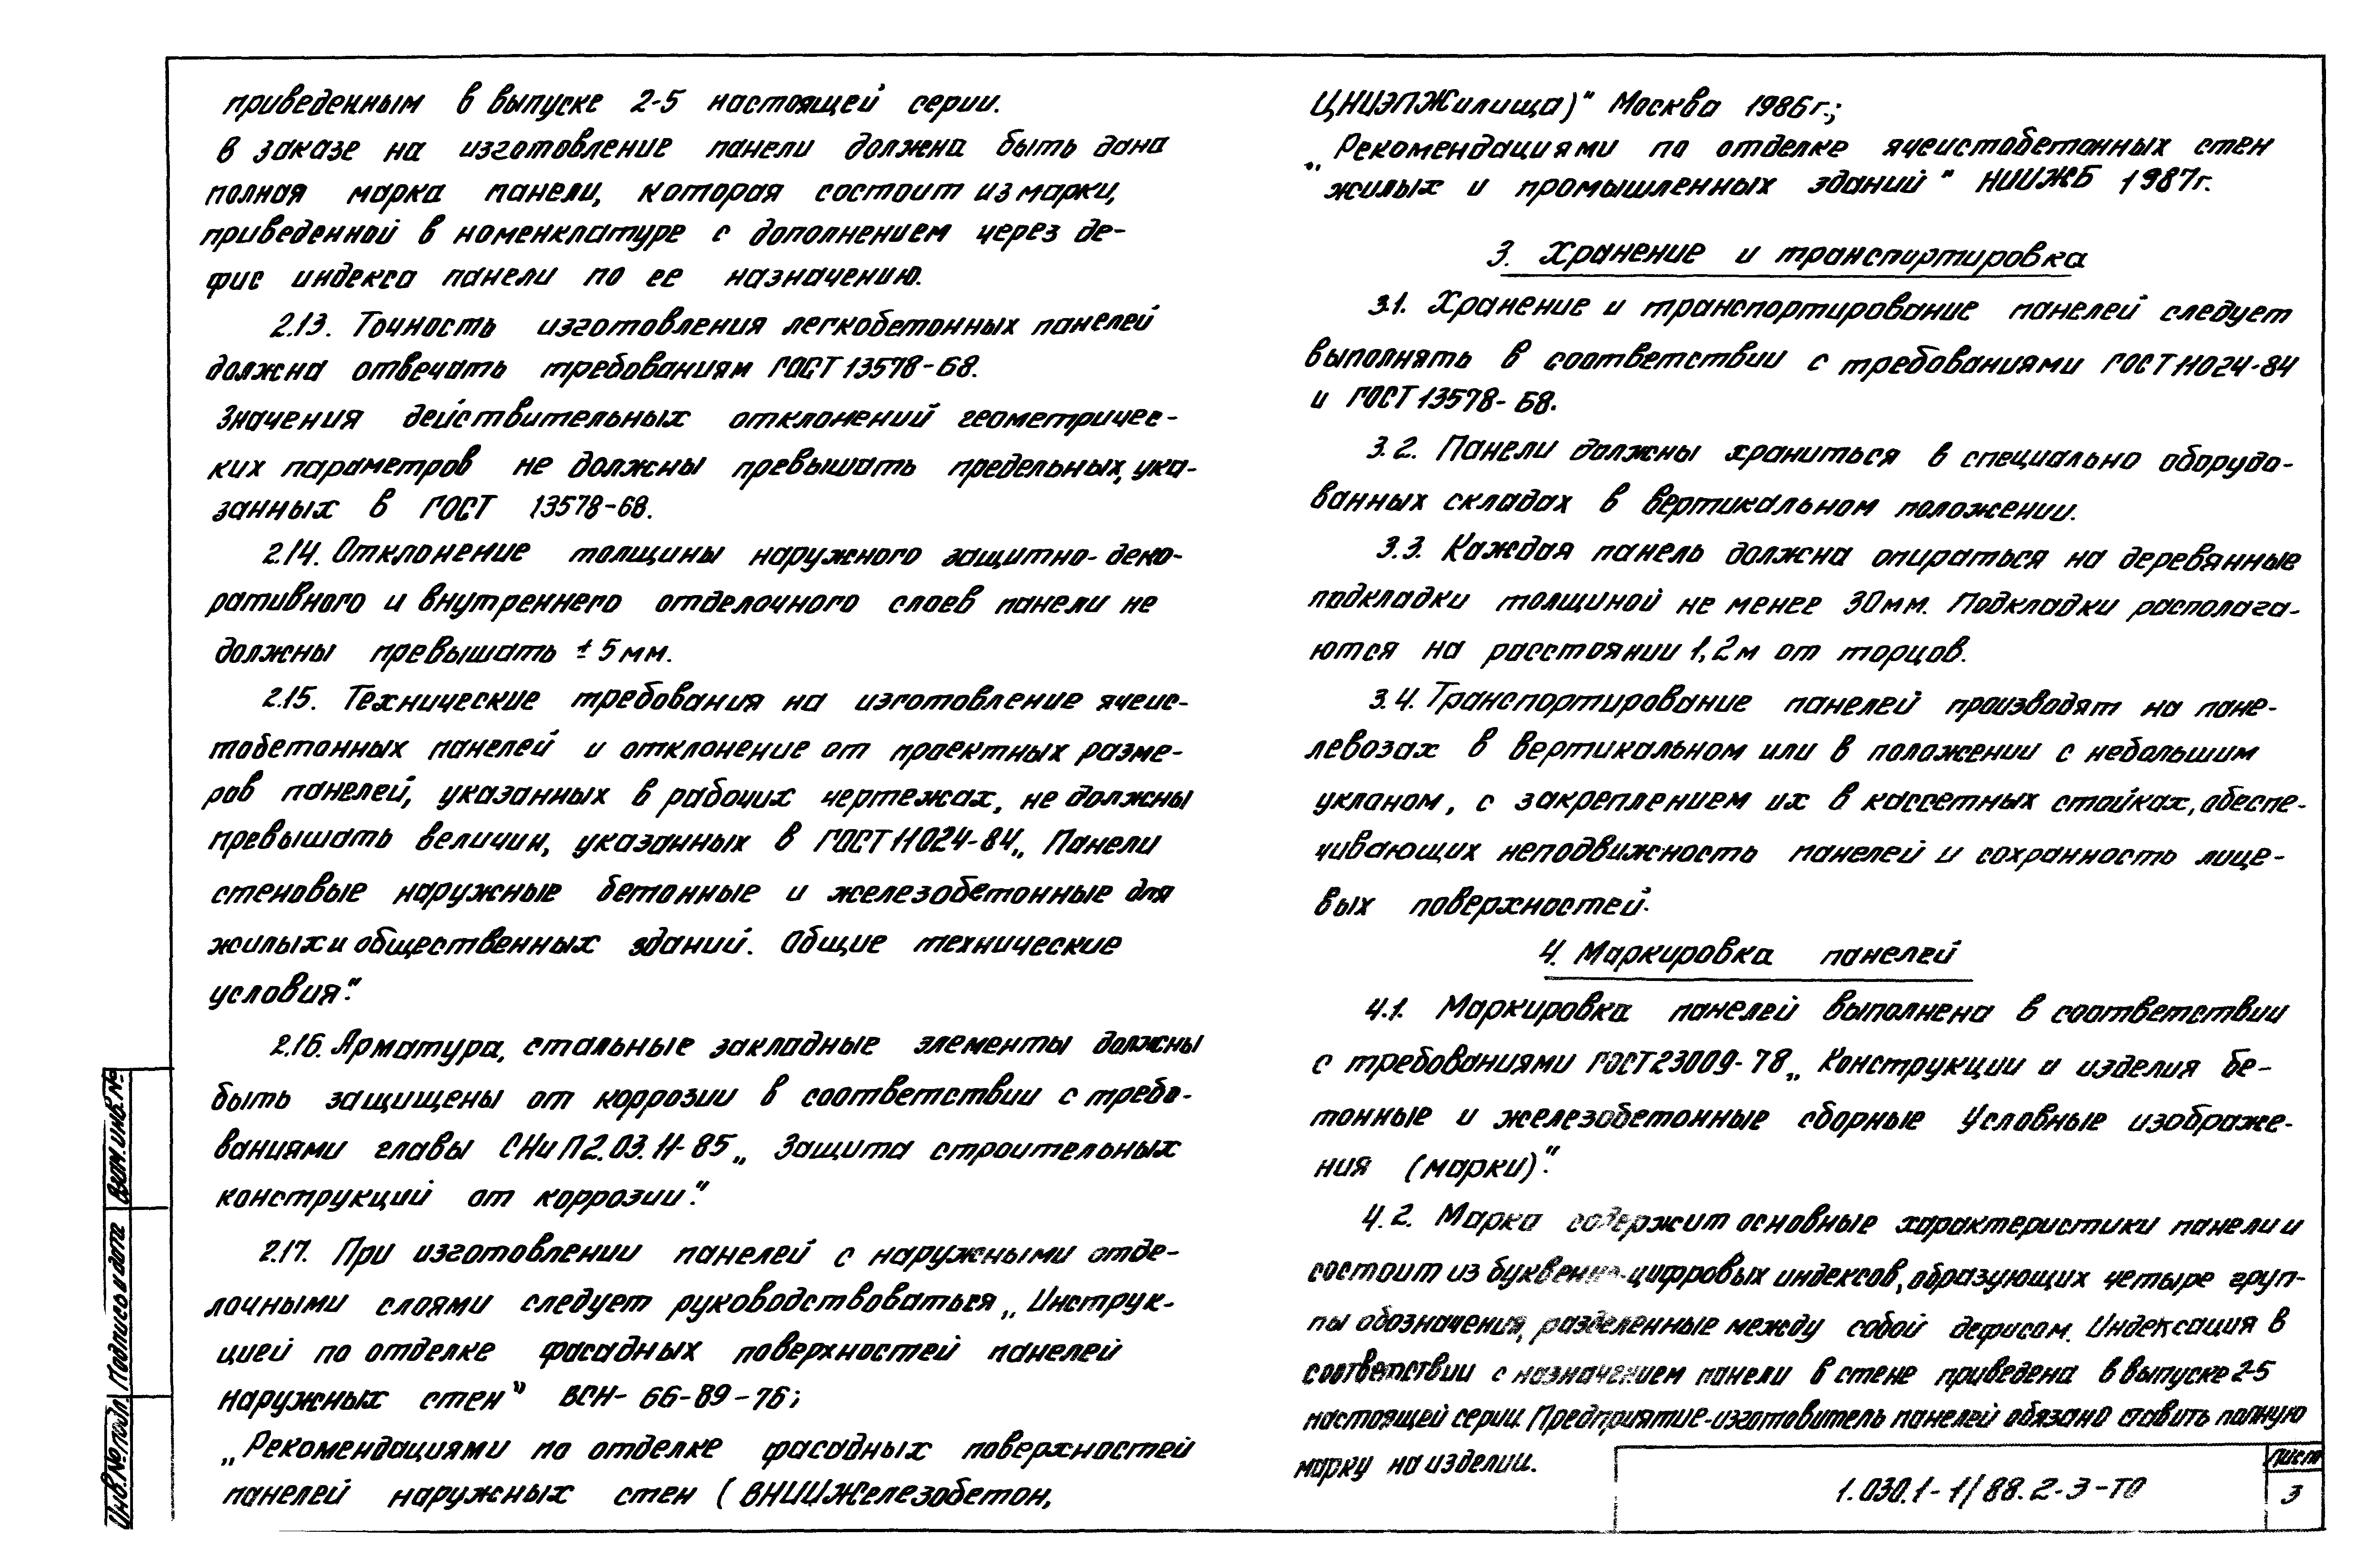 приведенным в выпуске 2-5 настоящей серии.
в заказе на изготовление панели должна быть дана
полная марка панели, которая состоит из марки,
приведенной в номенклатуре с дополнением через де-
фис индекса панели по ее назначению.
2.13. Точность изготовления легкобетонных панелей
должна отвечать требованиям ГОСТ 13578-68.
Значения действительных отклонений геометричес-
ких параметров не должны превышать предельных, ука-
занных в ГОСТ 13578-68.
2.14. Отклонение толщины наружного защитно-деко-
ративного и внутреннего отделочного слоев панели не
должны превышать ± 5 мм.
2.15. Технические требования на изготовление ячеис-
тобетонных панелей и отклонение от проектных разме-
ров панелей, указанных в рабочих чертежах, не должны
превышать величин, указанных в ГОСТ 11024-84 „Панели
стеновые наружные бетонные и железобетонные для
жилых и общественных зданий. Общие технические
условия".
2.16. Арматура, стальные закладные элементы должны
быть защищены от коррозии в соответствии с требо-
ваниями главы СНиП 2.03.11-85 „Защита строительных
конструкций от коррозии".
2.17. При изготовлении панелей с наружными отде-
лочными слоями следует руководствоваться „Инструк-
цией по отделке фасадных поверхностей панелей
наружных стен" ВСН-66-89-76;
„Рекомендациями по отделке фасадных поверхностей
панелей наружных стен (ВНИИЖелезобетон,
ЦНИЭПЖилища)" Москва 1986г.;
„Рекомендациями по отделке ячеистобетонных стен
жилых и промышленных зданий" НИИЖБ 1987г.
3. Хранение и транспортировка
3.1. Хранение и транспортирование панелей следует
выполнять в соответствии с требованиями ГОСТ 11024-84
и ГОСТ 13578-68.
3.2. Панели должны храниться в специально оборудо-
ванных складах в вертикальном положении.
3.3. Каждая панель должна опираться на деревянные
подкладки толщиной не менее 30 мм. Подкладки располага-
ются на расстоянии 1,2 м от торцов.
3.4. Транспортирование панелей производят на пане-
левозах в вертикальном или в положении с небольшим
уклоном, с закреплением их в кассетных стойках, обеспе-
чивающих неподвижность панелей и сохранность лице-
вых поверхностей.
4. Маркировка панелей
4.1. Маркировка панелей выполнена в соответствии
с требованиями ГОСТ 23009-78 „Конструкции и изделия бе-
тонные и железобетонные сборные Условные изображе-
ния (марки)".
4.2. Марка содержит основные характеристики панели и
состоит из буквенно-цифровых индексов, образующих четыре груп-
пы обозначения, разделенные между собой дефисом. Индексация в
соответствии с назначением панели в стене приведена в выпуске 2-5
настоящей серии. Предприятие-изготовитель панелей обязано ставить полную
марку на изделии.
1.030.1-1/88.2-3-ТО
Лист
3
Инв.№ подл.
Подпись и дата
Взам.инв.№